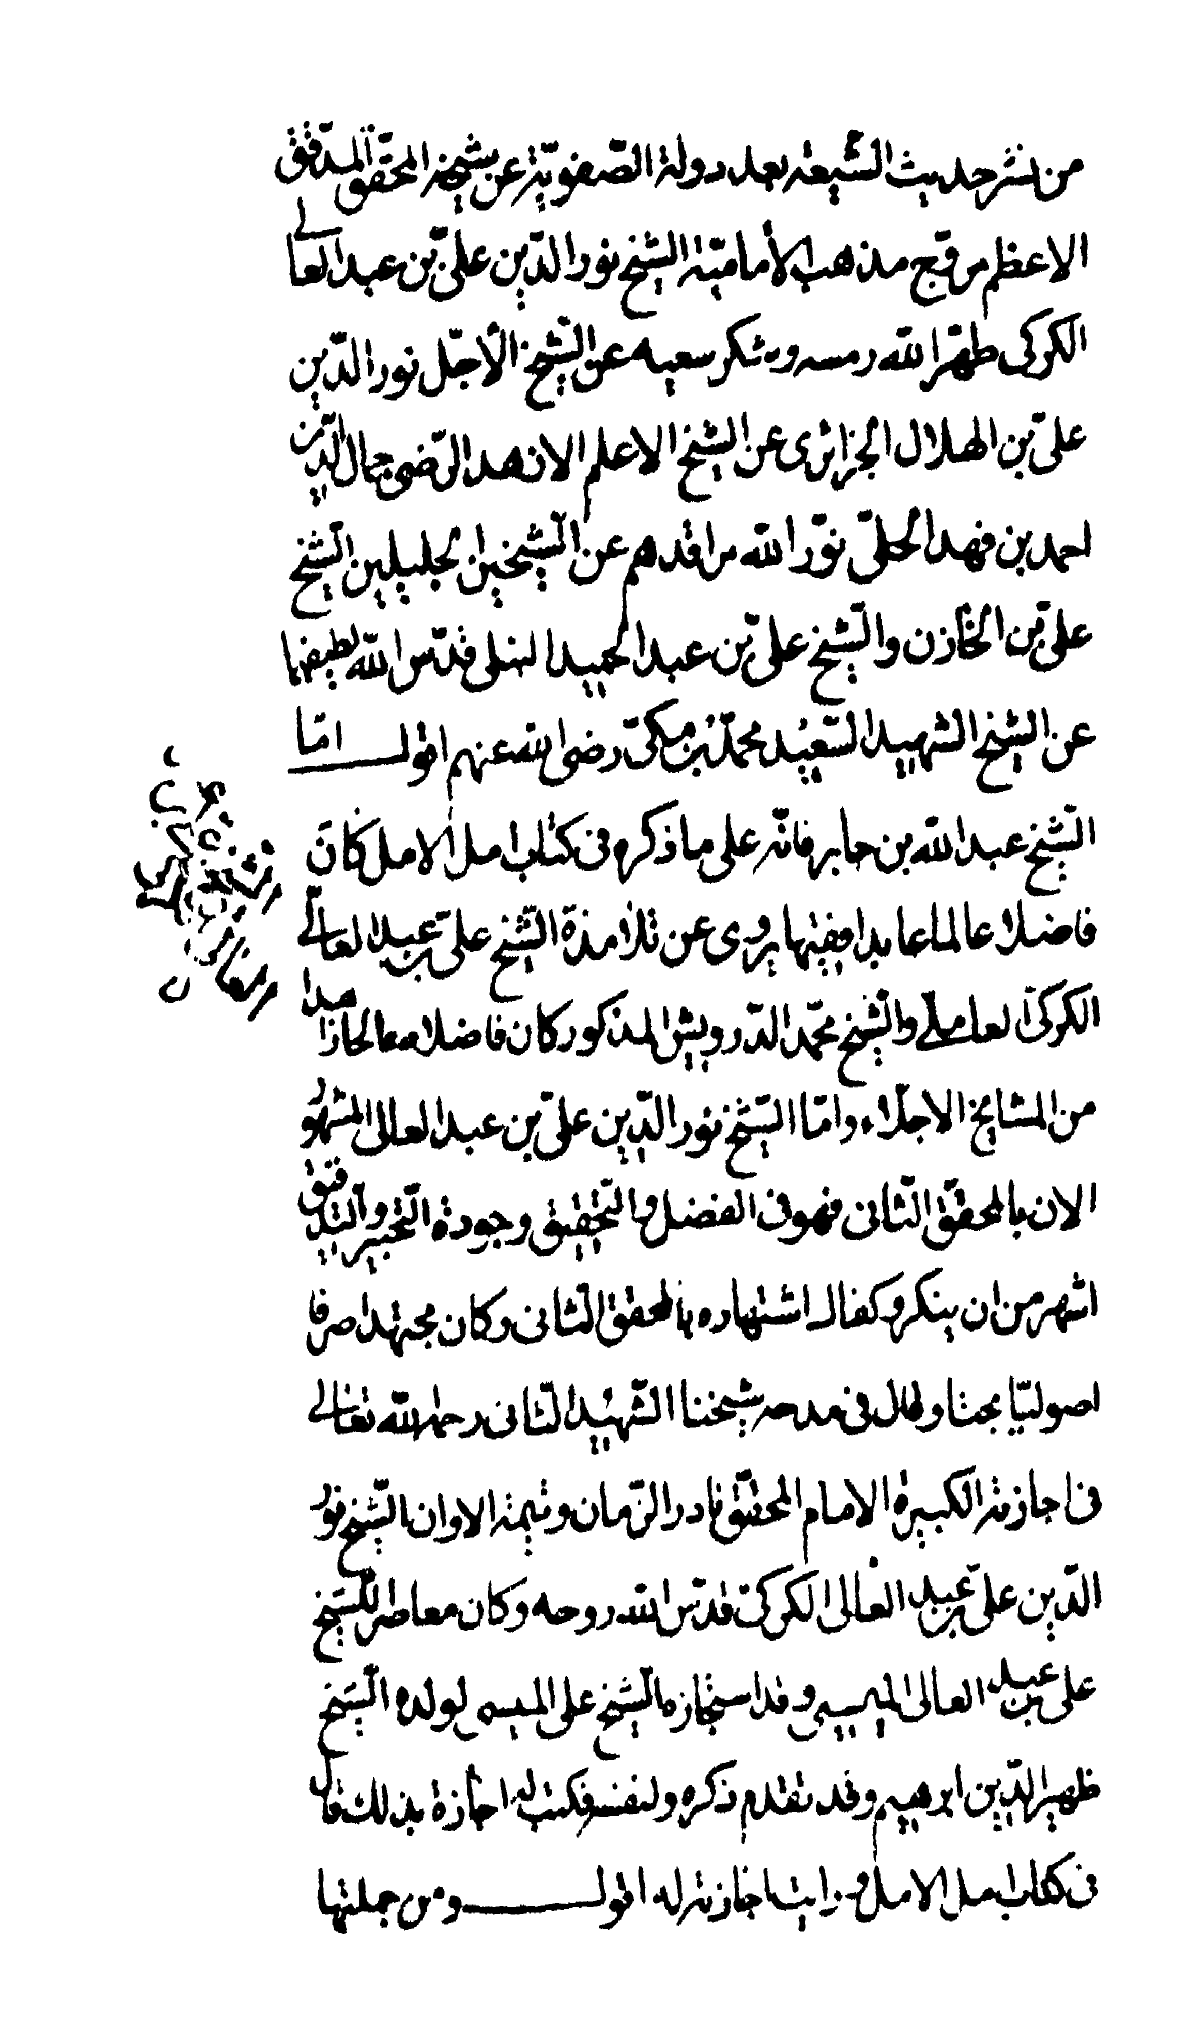 من نشر حديث الشيعة بعد دولة الصّفويّة عن شيخه المحقّق المدقّق
الاعظم مروّج مذهب الأماميّة الشيخ نور الدّين علىّ بن عبد العالى
الكركى طهّر الله رمسه وشكر سعيه عن الشّيخ الأجلّ نور الدّين
علىّ بن الهلال الجزائرى عن الشيخ الاعلم الازهد الرّضى جمال الدّين
احمد بن فهد الحلّى نوّر الله مراقدهم عن الشّيخين الجليلين الشّيخ
علىّ بن الخازن والشّيخ علىّ بن عبد الحميد النيلى قدّس الله لطيفهما
عن الشيخ الشهيد السّعيد محمّد بن مكّى رضى الله عنهم اقول امّا
الشّيخ عبد الله بن جابر فانّه على ما ذكره فى كتاب امل الامل كان
فاضلا عالما عابدا فقيها يروى عن تلامذة الشّيخ علىّ بن عبد العالى
الكركى العاملى والشّيخ محمّد الدّرويش المذكور كان فاضلا صالحا زاهدا
من المشايخ الاجلّاء وامّا الشّيخ نور الدّين علىّ بن عبد العالى المشهور
الان بالمحقّق الثّانى فهو فى الفضل والتّحقيق وجودة التّحبير والتّدقيق
اشهر من ان ينكر وكفاك اشتهاره بالمحقّق الثّانى وكان مجتهدا صرفا
اصوليّا بحتا وقال فى مدحه شيخنا الشّهيد الثّانى رحمه الله تعالى
فى اجازته الكبيرة الامام المحقّق نادر الزّمان ويتيمة الاوان الشّيخ نور
الدّين علىّ بن عبد العالى الكركىّ قدّس الله روحه وكان معاصر للشّيخ
على بن عبد العالى الميسى وقد استجازه الشّيخ على الميسى لولده الشّيخ
ظهير الدّين ابرهيم وقد تقدم ذكره ولنفسه فكتب له اجازة بذلك قال
فى كتاب امل الامل ورايت اجازته له اقول ومن جملتها